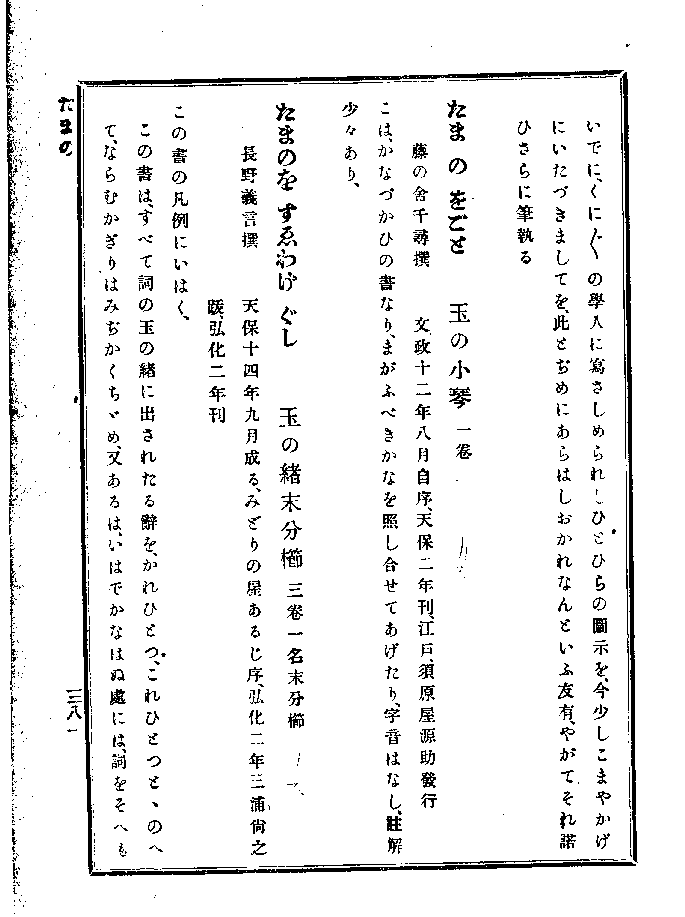 いでに、くに〴〵の學人に寫さしめられしひとひらの圖示を、今少しこまやかげ
にいたづきましてを、此とぢめにあらはしおかれなんといふ友有、やがてそれ諾
ひさらに筆執る
たまのをごと　玉の小琴 一卷
藤の舍千尋撰　文政十二年八月自序、天保二年刊、江戸、須原屋源助發行
こは、かなづかひの書なり、まがふべきかなを照し合せてあげたり、字音はなし、註解
少々あり、
たまのを すゑわけ ぐし　玉の緒末分櫛 三卷一名末分櫛
長野義言撰　天保十四年九月成る、みどりの屋あるじ序、弘化二年三浦尙之
跋、弘化二年刊
この書の凡例にいはく、
この書は、すべて詞の玉の緒に出されたる辭を、かれひとつ、これひとつと、のへ
て、ならむかぎりはみぢかくちゞめ、又あるは、いはでかなはぬ處には、詞をそへも
たまの
三八一